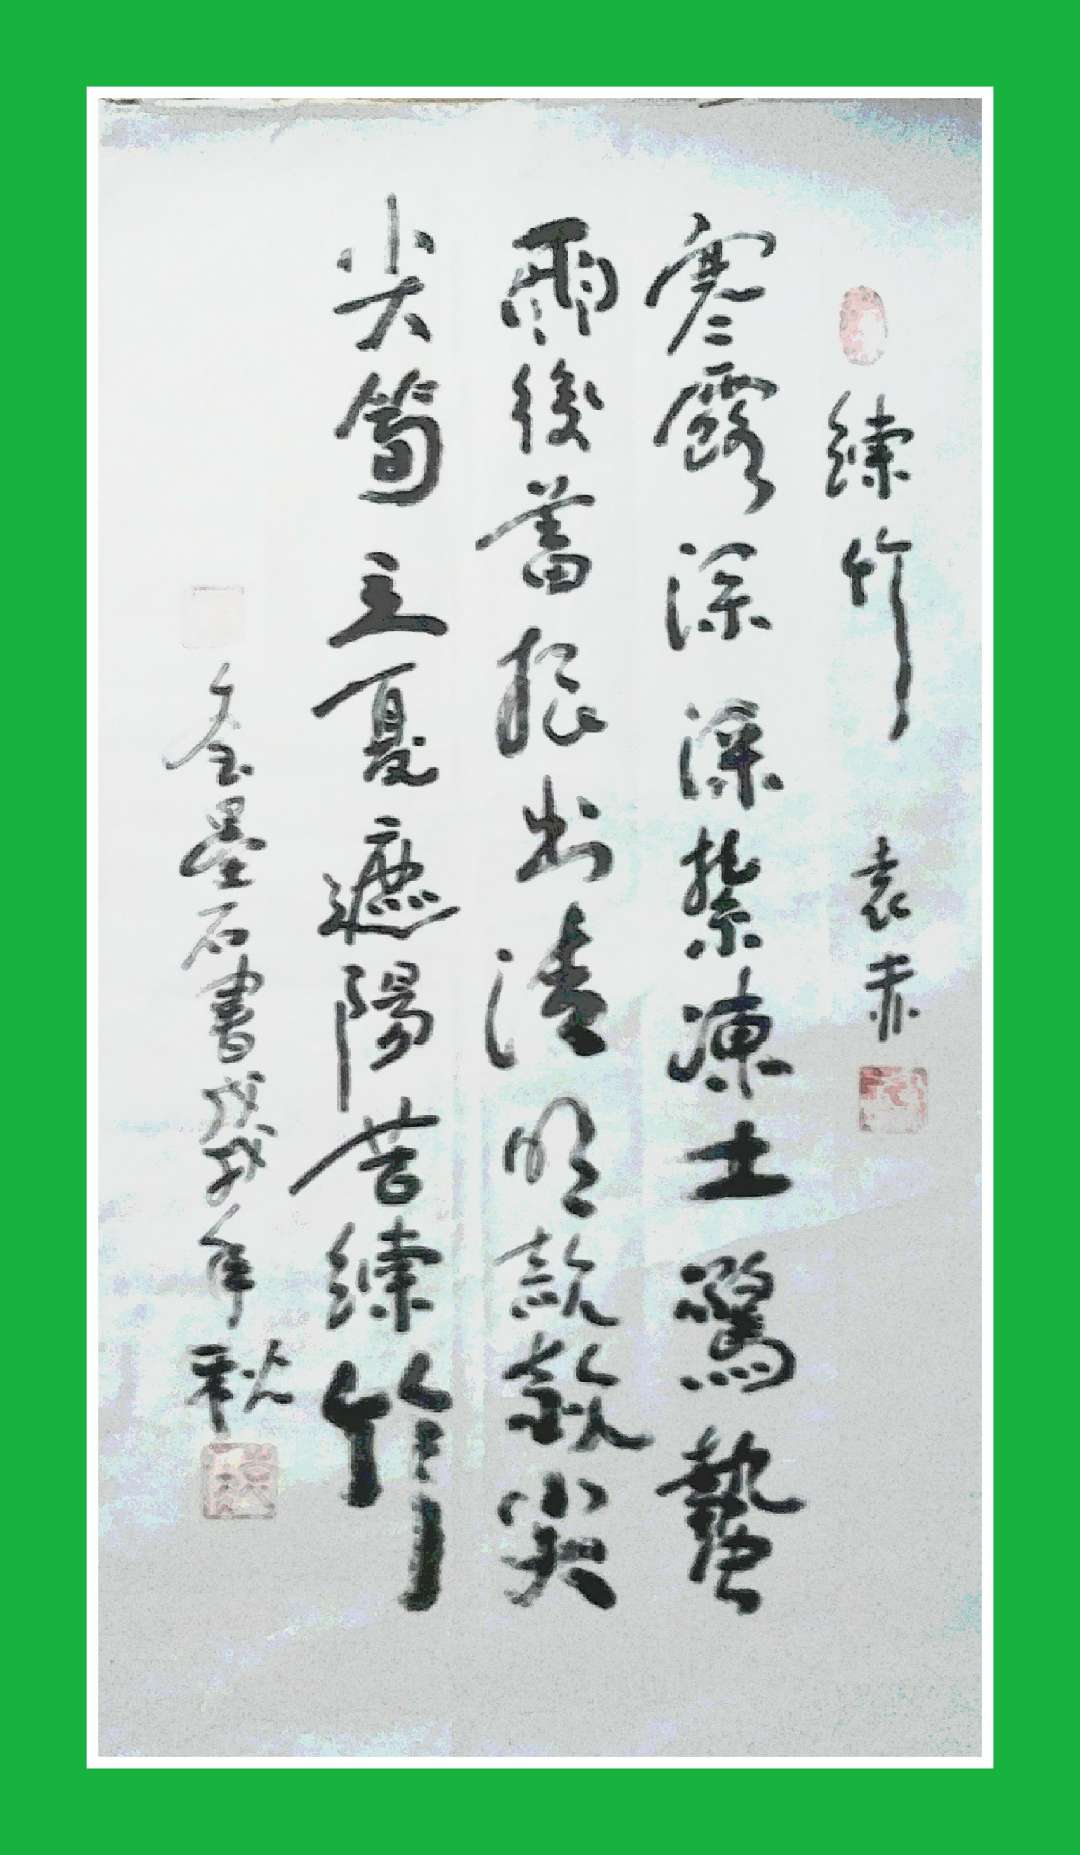 練竹 袁赤
寒露深深紮凍土驚蟄
雨後舊根出清明款款尖
尖筍立夏遮陽苦練竹
金墨石書戊戌年秋